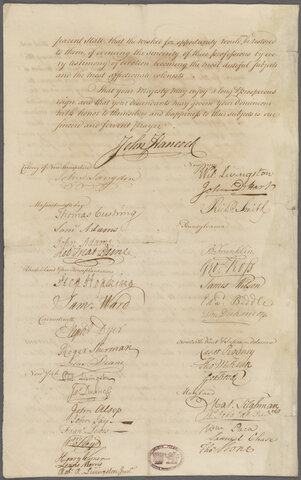 parent state, that the wished for opportunity would be restored
to them, of evincing the sincerity of their professions by eve
ry testimony of devotion becoming the most dutiful subjects
and the most affectionate colonists.
That your Majesty may enjoy a long & prosperous
reign, and that your descendants may govern your dominions
with honor to themselves and happiness to their subjects is our
sincere and fervent prayer.
John Hancock
Colony of New hampshire
John Langdon
Massachusetts bay
Thomas Cushing
Saml Adams
John Adams
Robt Treat Paine
Step Hopkins
Sam: Ward
Connecticut
Elipht Dyer
Roger Sherman
Silas Deane
New York
Phil. Livingston
Jas Duane
John Alsop
John Jay
Frans Lewis
Wm Floyd
Lewis Morris
Robt R Livingston Junr
New Jersey
Wil: Livingston
John D Hart
Richd Smith
Pennsylvania
B Franklin
Geo: Ross
James Wilson
Edwd Biddle
Delaware
Caesar Rodney
Tho M:Kean
Geo: Read
Maryland
Mat. Tilghman
Wm Paca
Samuel Chase
Thos Stone